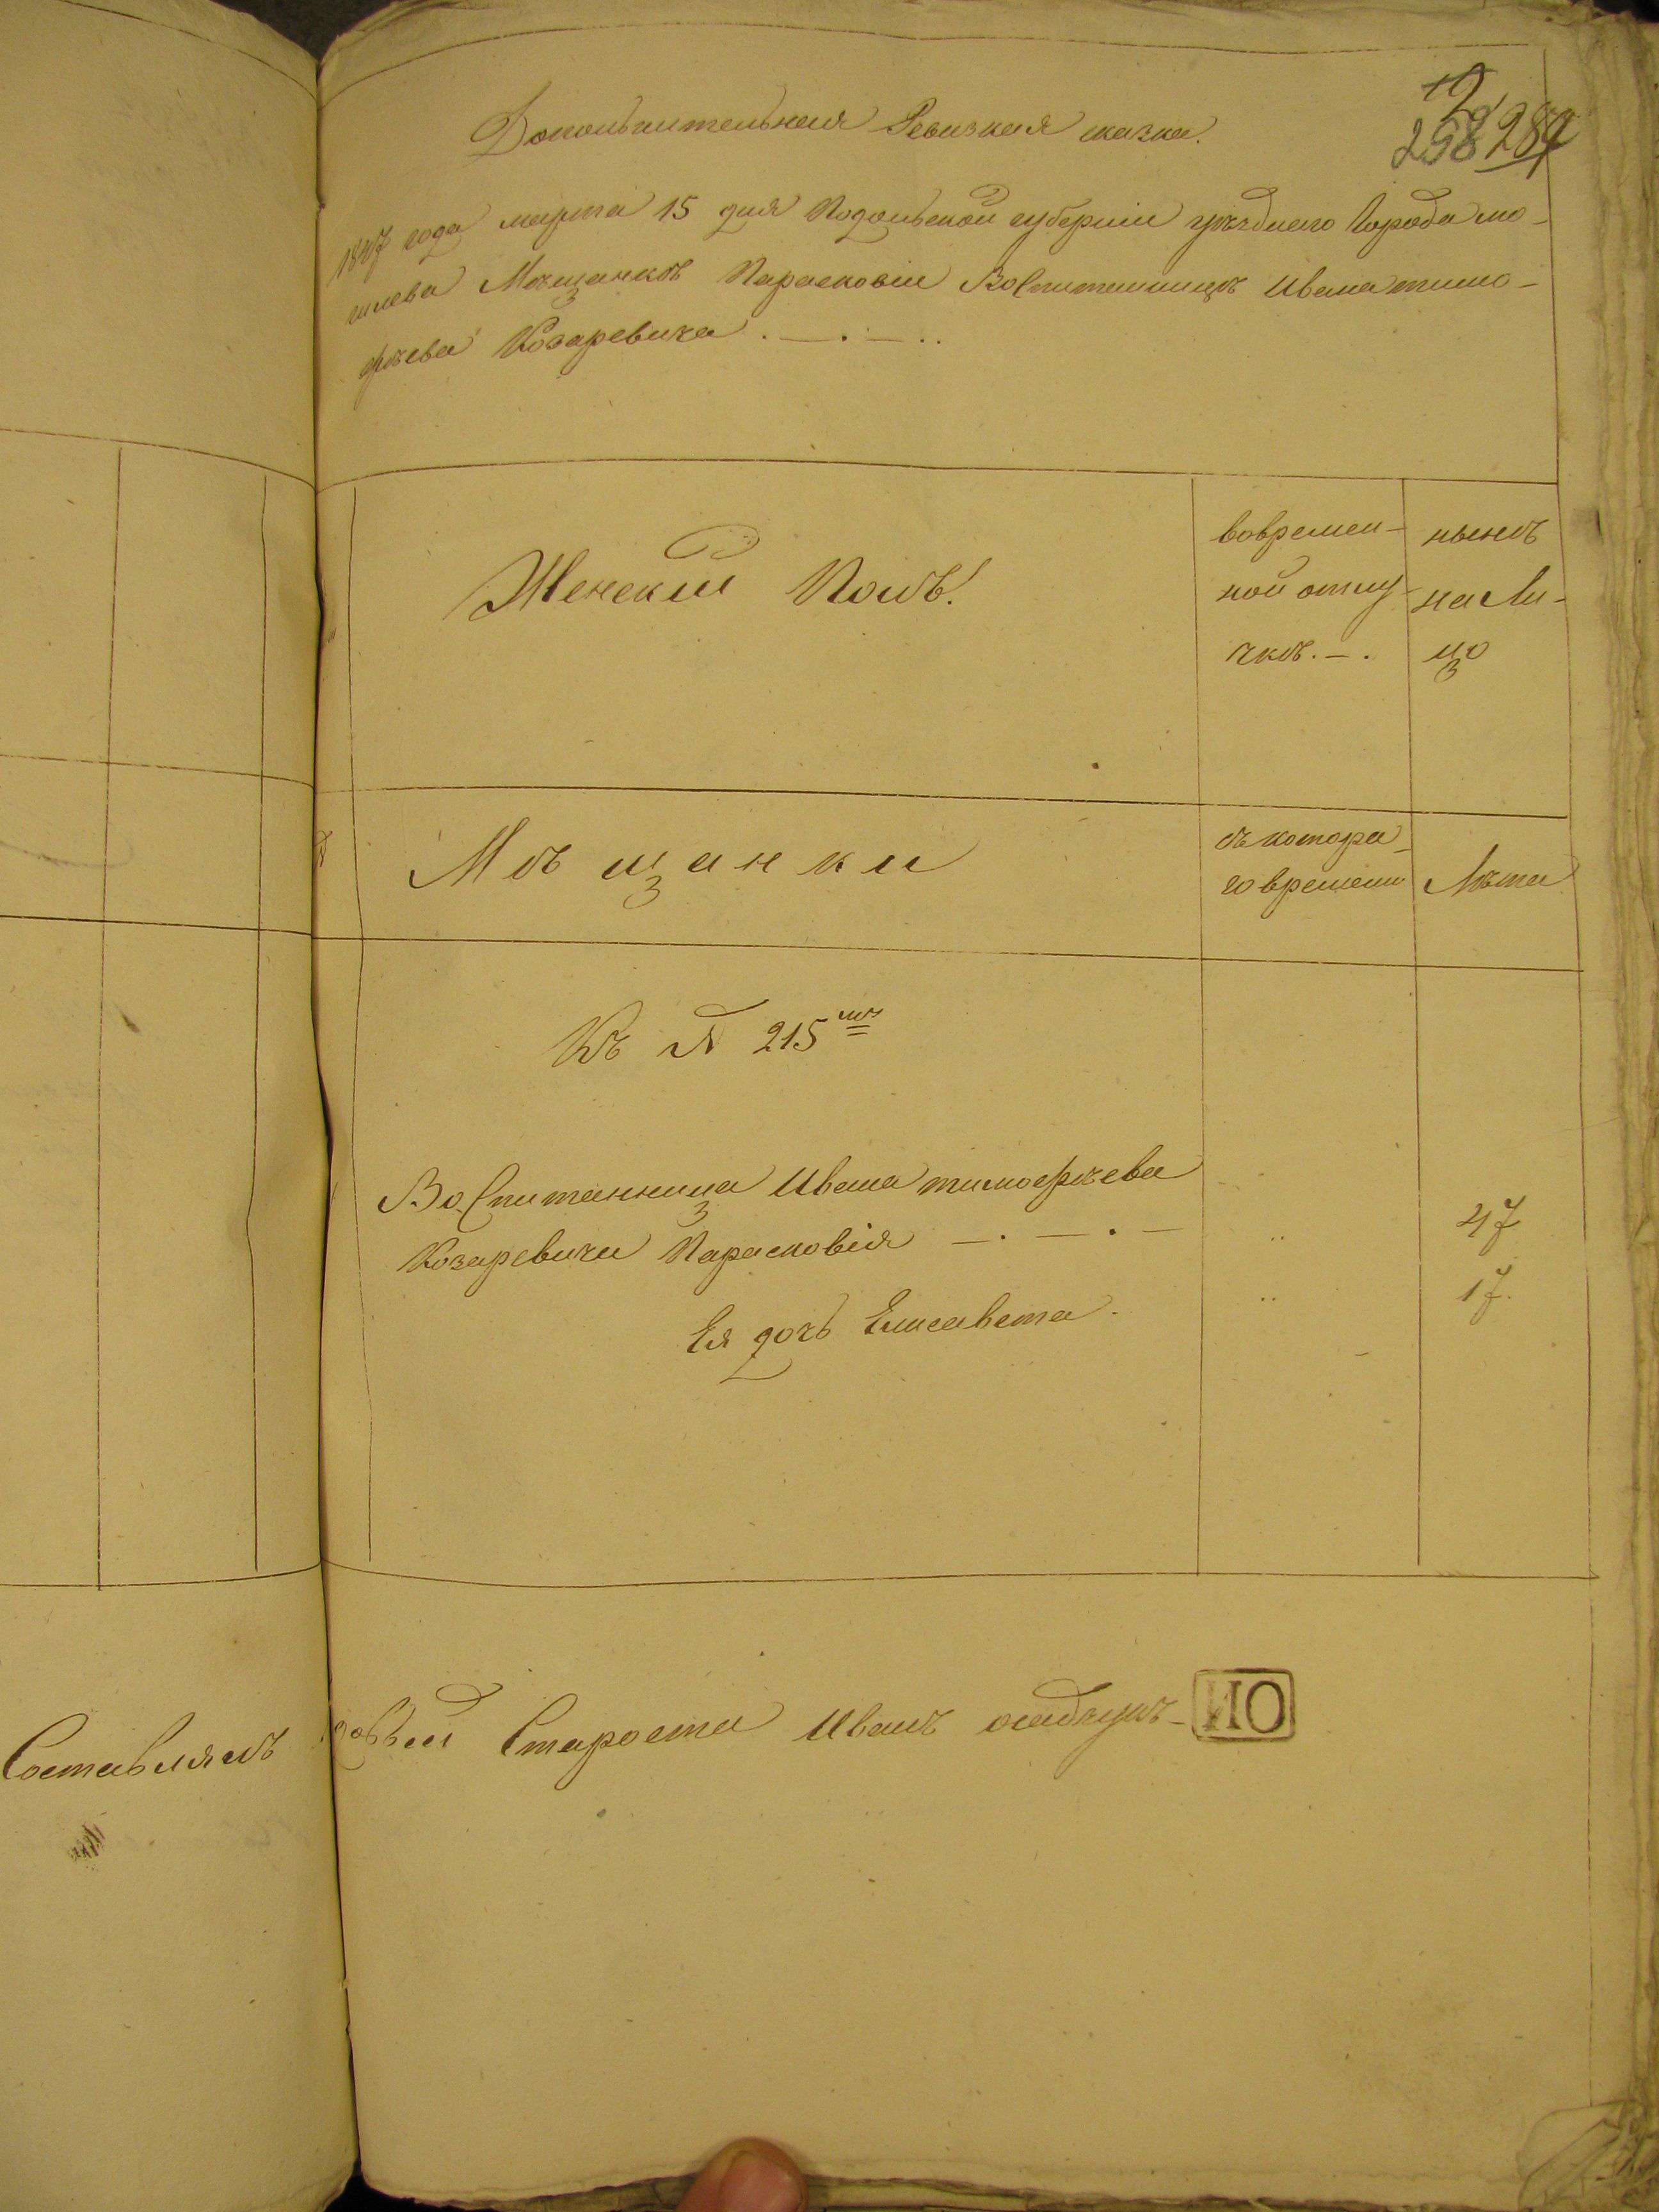 Дополнительная Ревизкая сказка.
258 287
1847 года марта 15 дня Подольской губернии уѣзднаго Города мо-
гилева Мѣщанкѣ Парасковіи Воспитанницѣ Ивана тимо-
фѣева Козаревича
Женскій Полъ.
вовремен-
ной отлу-
чкѣ.
нынѣ
на Ли-
цо
Мѣщанки
съ котора-
го времени
Лѣта
Къ № 215му
Воспитанница Ивана тимофѣева
Козаревича Парасковія 47
Ея дочь Елисавета 17.
Составлялъ Староста Иванъ
ИО